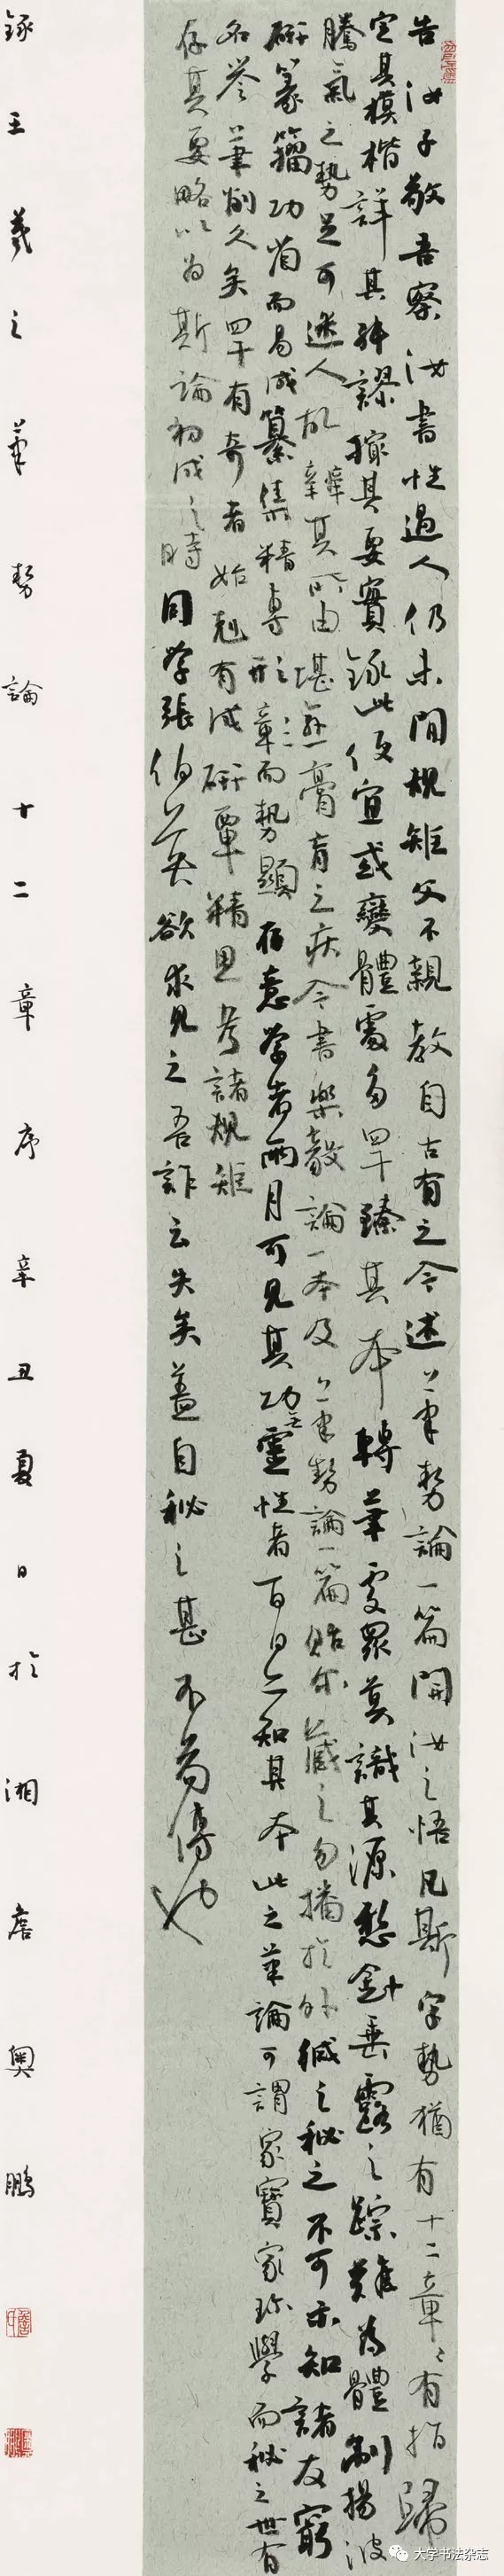 告汝子敬吾察汝書性過人仍未閑規矩父不親教自古有之今述筆勢論一篇開汝之悟凡斯字勢猶有十二章〻有指歸
定其模楷詳其舛謬撮其要實錄此便宜或變體處多罕臻其本轉筆處眾莫識其源懸針垂露之蹤難為體制揚波
騰氣之勢足可迷人故辨其所由堪愈膏肓之疾今書樂毅論一本及筆勢論一篇貽爾藏之勿播於外緘之秘之不可示知諸友窮
研篆籀功省而易成纂集精專形彰而勢顯存意學者兩月可見其功無靈性者百日亦知其本此之筆論可謂家寶家珍學而秘之世有
名譽筆削久矣罕有奇者始克有成研覃精思考諸規矩
存其要略以為斯論初成之時同學張伯英欲求見之吾詐云失矣蓋自秘之甚不苟傳也
錄王羲之筆勢論十二章序辛丑夏日於湘唐奧鵬
大学书法杂志